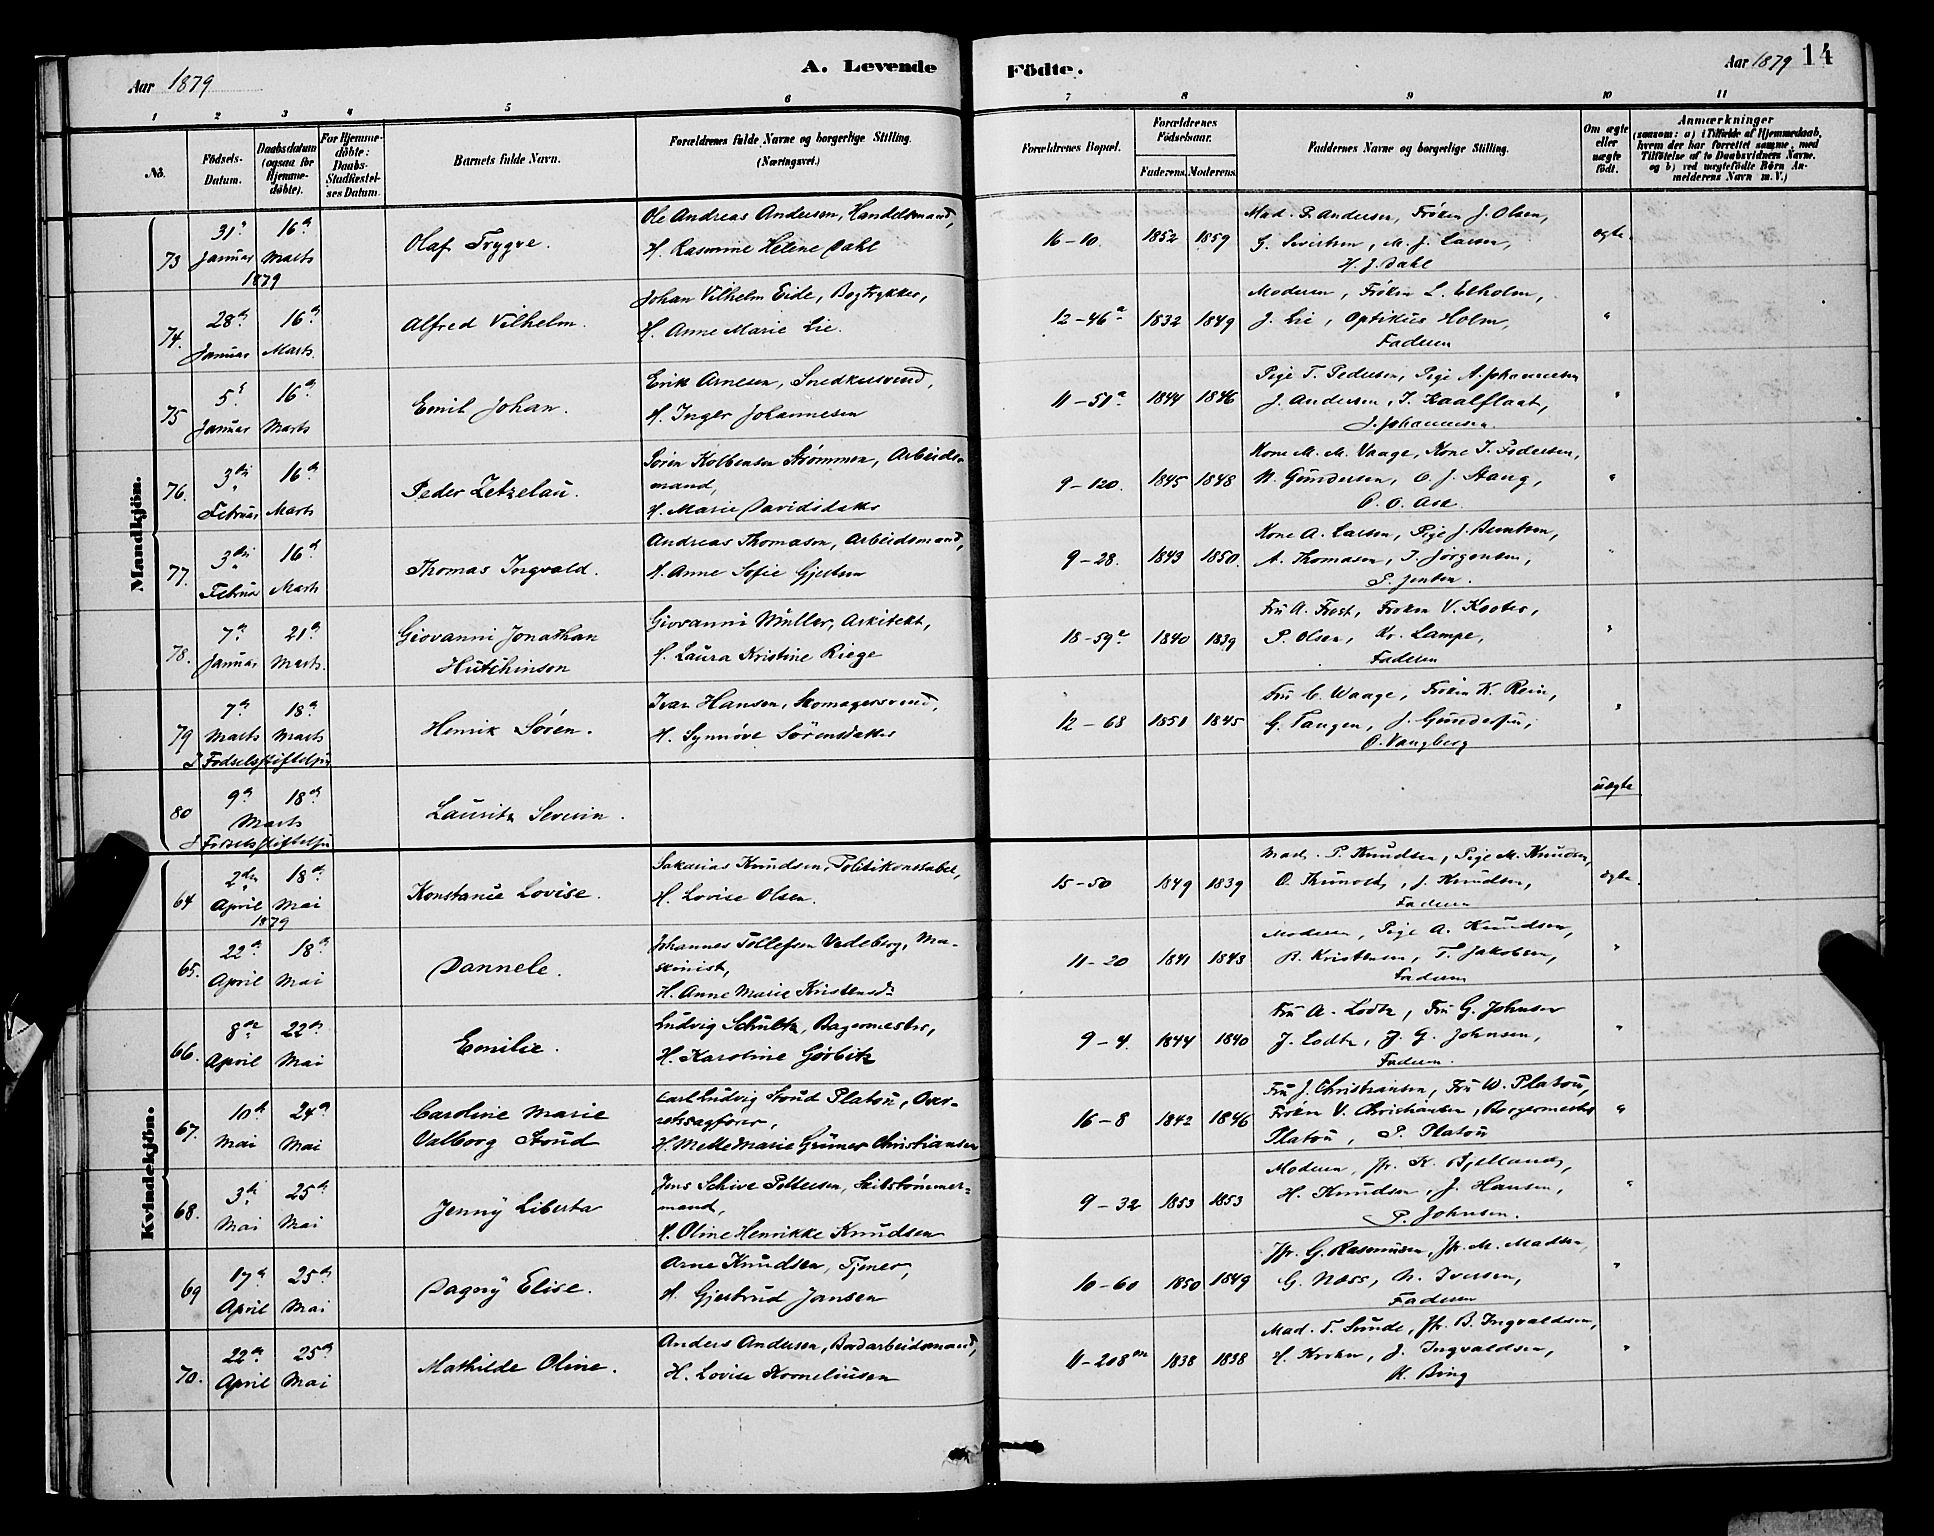 Aar 1879 A. Levende Födte. Aar 1879 14
1 2 3 4 5 6 7 8 9 10 11
No.
Födsels-Datum.
Daabsdatum (ogsaa for Hjemme-döbte).
For Hjemme-döbte: Daabs-Stadfæstel-ses Datum.
Barnets fulde Navn.
Forældrenes fulde Navne og borgerlige Stilling. (Næringsvei.)
Forældrenes Bopæl.
Forældrenes Födselsaar.
Faderens. Moderens.
Faddernes Navne og borgerlige Stilling.
Om ægte eller uægte födt.
Anmærkninger
(saasom: a) i Tilfælde af Hjemmedaab, hvem der har forrettet samme, med Tilföielse af to Daabsvidners Navne, og b) ved uægtefödte Börn An-melderens Navn m. V.)
Mandkjön.
73 31 Januar 1879 16 Marts Olaf Trygve.
Ole Andreas Andersen, Handelsmand,
H. Rasmine Helene Dahl
16-10. 1852 1859
Mad. P. Andersen, Frøken J. Olsen,
G. Sivertsen, M. J. Larsen,
H. J. Dahl
ægte.
74. 28 Januar 16 Marts. Alfred Vilhelm.
Johan Vilhelm Eide, Bogtrykker,
H. Anne Marie Lie.
12-46a 1832 1849
Moderen, Frøken L. Elholm,
J. Lie, Optikus Holm,
Faderen
"
75 5 Januar 16 Marts Emil Johan.
Erik Arnesen, Snedkersvend,
H. Inger Johannesen
11-51a 1844 1846
Pige T. Pedersen, Pige A. Johannesen
J. Andersen, I. Kaalflaat,
J. Johannesen.
"
76. 3die Februar 16 Marts Peder Zetzelau.
Søren Kolbensen Strømmen, Arbeids-
mand,
H. Marie Davidsdatter
9-120. 1845 1848
Kone M. M. Vaage, Kone I. Pedersen,
N. Gundersen, O. J. Stang,
O. O. Ask
"
77. 3die Februar 16 Marts Thomas Ingvald.
Andreas Thomasen, Arbeidsmand,
H. Anne Sofie Gjertsen
9-28. 1843 1850.
Kone A. Larsen, Pige J. Berntsen,
A. Thomasen, I. Jørgensen,
P. Jensen.
"
78. 7 Januar 21 Marts. Giovanni Jonathan
Hutchinson
Giovanni Müller, Arkitekt,
H. Laura Kristine Riege
18-59a 1840 1839
Fru A. Frost, Frøken V. Koster,
P. Olsen, Kr. Lampe,
Faderen
"
79 7 Marts 18 Marts Henrik Søren.
I Fødselsstiftelsen
Ivar Hansen, Skomagersvend,
H. Synnøve Sørensdatter
12-68 1851 1845
Fru C. Waage, Frøken K. Rein,
G. Tangen, J. Gundersen,
O. Vangberg
"
80 9 18 Marts Lauritz Severin.
I Fødselsstiftelsen
uægte
Kvindekjön.
64 2den April 1879 18 Mai Konstanse Lovise.
Sakarias Knudsen, Politikonstabel,
H. Lovise Olsen.
15-50 1849 1839
Mad. P. Knudsen, Pige M. Knudsen,
O. Thunold, J. Knudsen,
Faderen
ægte.
65. 22 April 18 Mai Dannele.
Johannes Tollefsen Vadeberg, Ma-
skinist,
H. Anne Marie Kristensd.
11-20 1841 1843
Moderen, Pige A. Knudsen,
R. Kristensen, T. Jakobsen,
Faderen
"
66. 8 April 22 Mai Emilie.
Ludvig Schultz, Bagermester,
H. Karoline Görbitz
9-4. 1844 1840
Fru A. Lodtz, Fru G. Johnsen
J. Lodtz, J. G. Johnsen,
Faderen.
"
67. 10 Mai 24 Mai Caroline Marie
Valborg Stoud
Carl Ludvig Stoud Platou, Over-
retssagfører,
H. Mette Marie Grüner Christiansen
16-8 1842 1846
Fru J. Christiansen, Fru W. Platou,
Frøken V. Christiansen, Borgermester
Platou, P. Platou
"
68. 3 Mai 25 Mai Jenny Liberta
Jens Schive Pettersen, Skibstømmer-
mand,
H. Oline Henrikke Knudsen
9-32 1853 1853
Moderen, Jfr. K. Bjelland,
H. Knudsen, J. Hansen,
P. Johnsen.
"
69 17 April 25 Mai Dagny Elise.
Arne Knudsen, Tjener,
H. Gjertrud Jansen
10-60 1850 1849
Jfr. G. Rasmusen, Jfr. M. Madsen,
G. Næss, N. Iversen,
Faderen
"
70. 22 April 25 Mai Mathilde Oline.
Anders Andersen, Bordarbeidsmand,
H. Lovise Korneliusen
11-208 1838 1838
Mad. T. Sunde, Jfr. B. Ingvaldsen,
H. Krohn, J. Ingvaldsen,
K. Bing
"